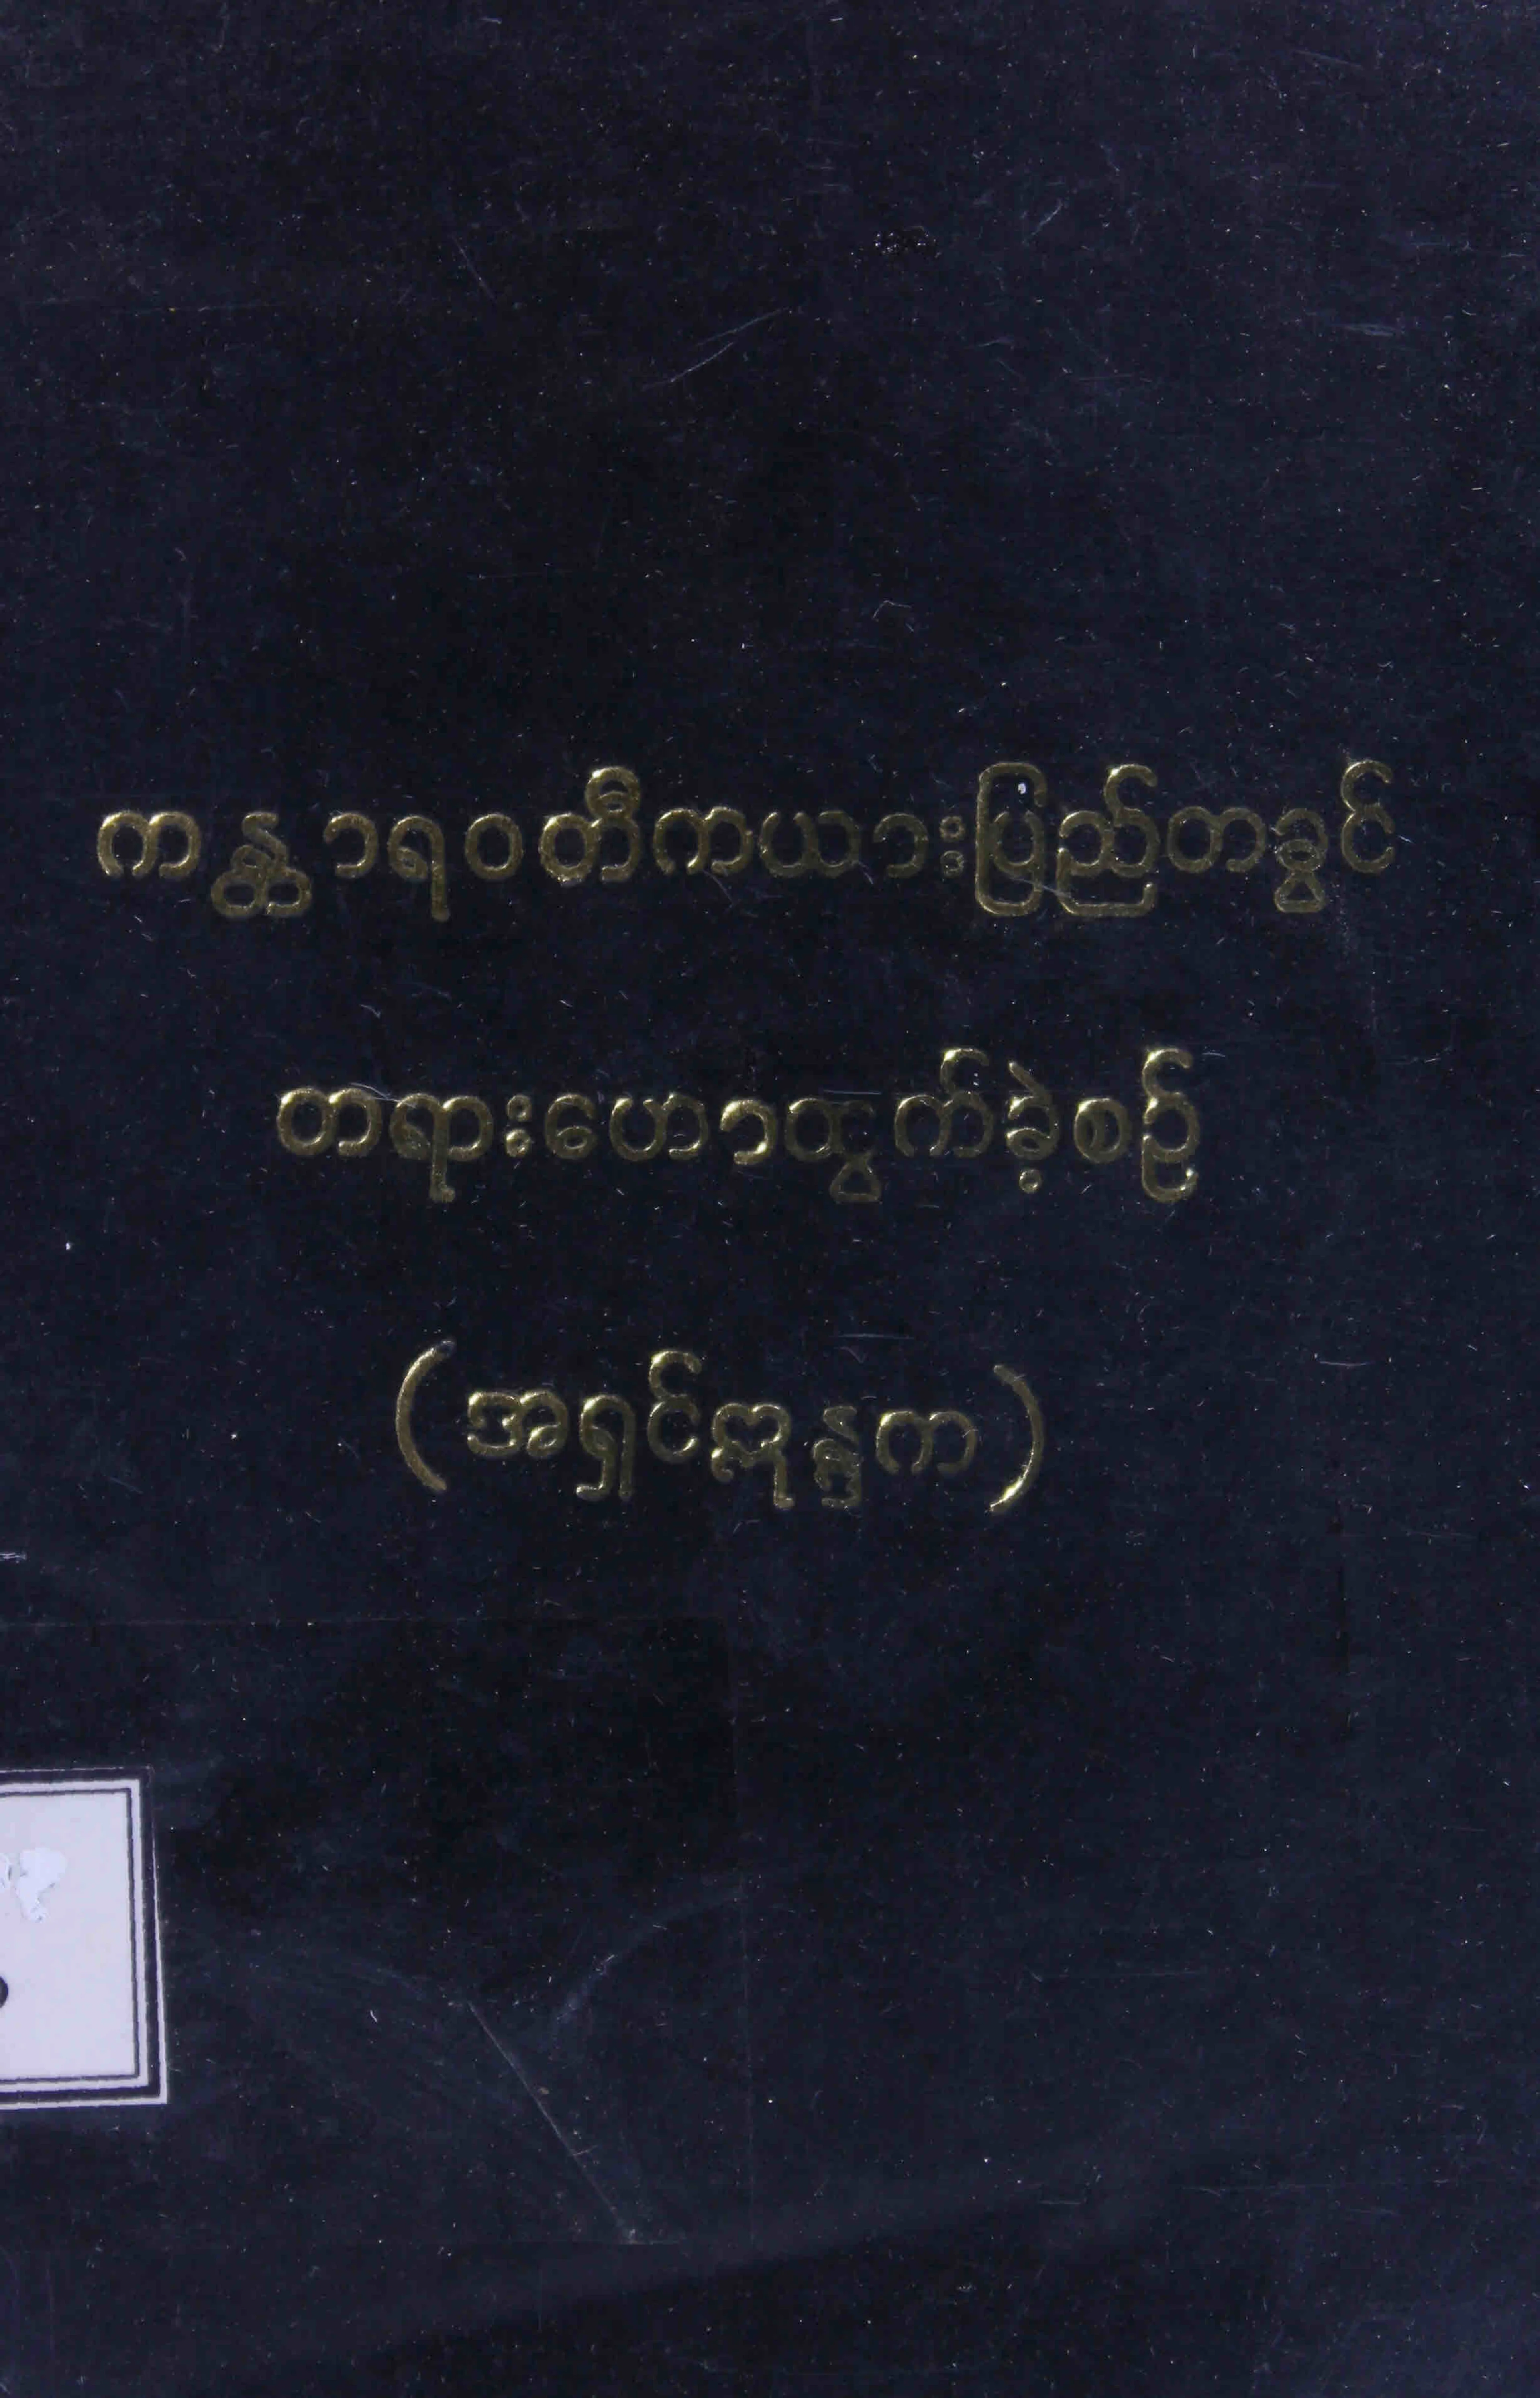 ကန္တာရဝတီကယားပြည်တခွင်
တရားဟောထွက်ခဲ့စဉ်
(အရှင်ဣန္ဒက)